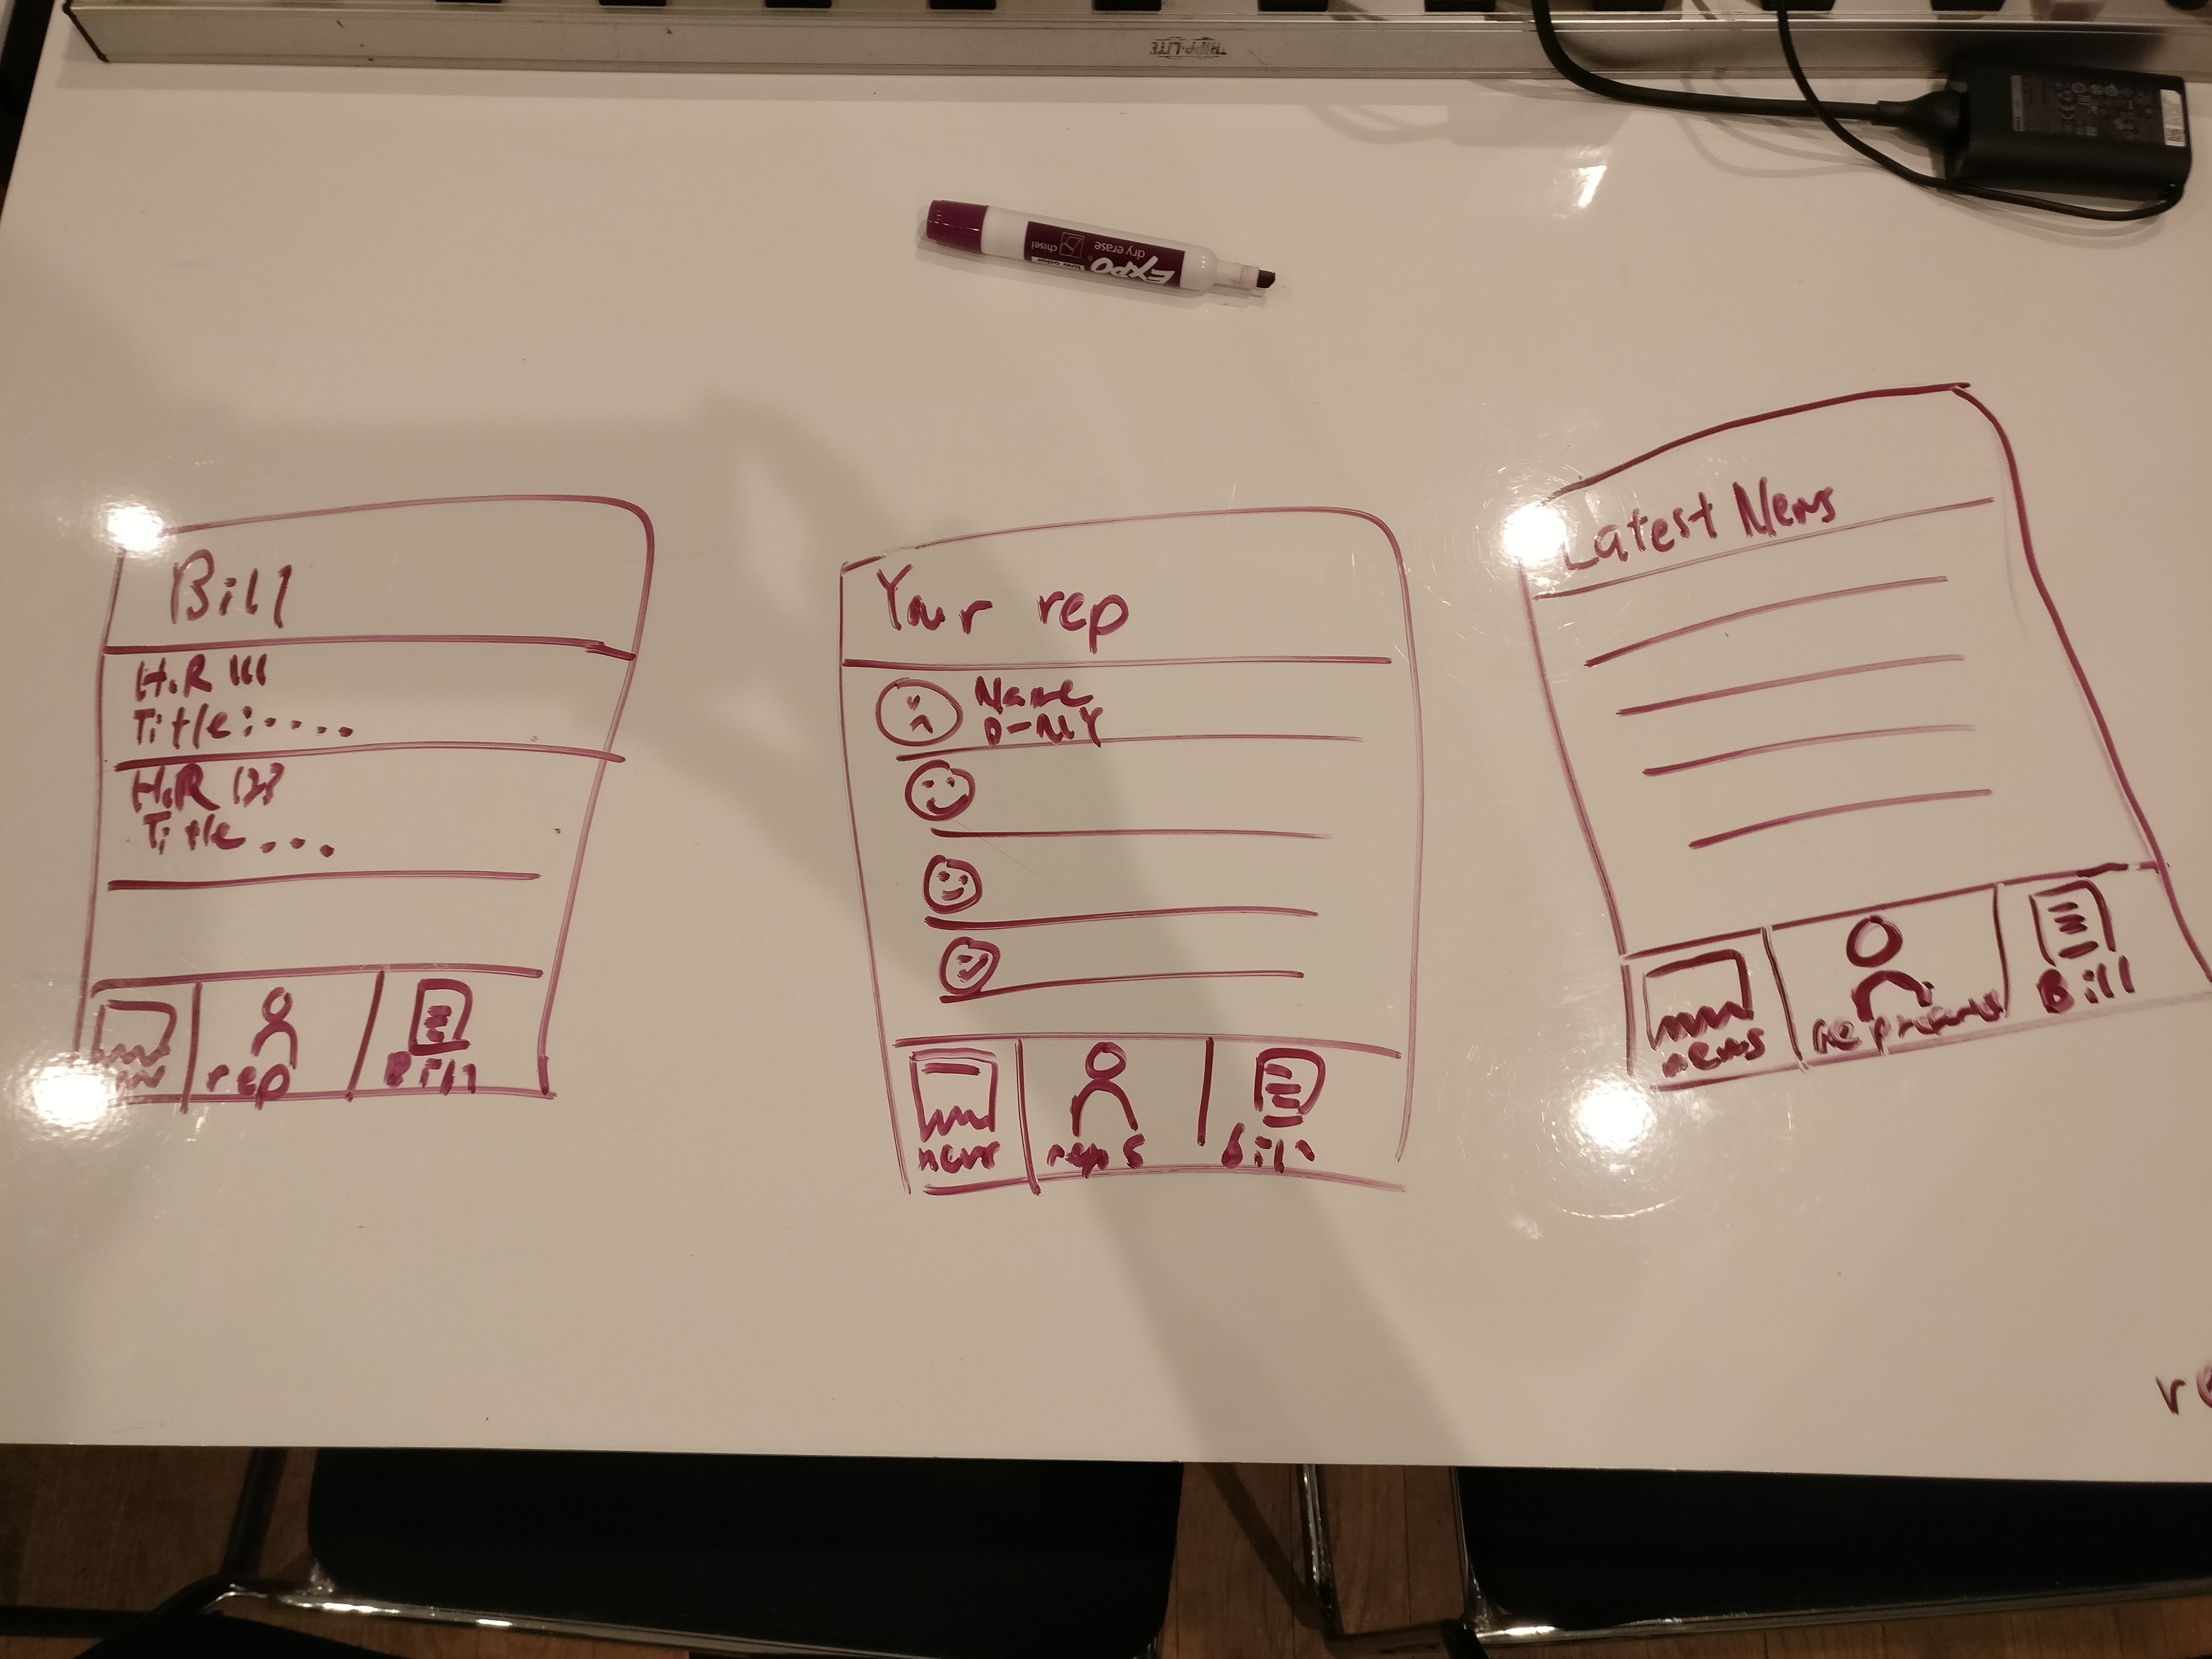 TRIPP-LITE
EXPO
low odor
dry erase
chisel
Bill
H.R 111
Title: ....
H.R
Title ...
rep
Bill
Your rep
Name
D-NY
news
reps
bill
Latest News
news
Bill